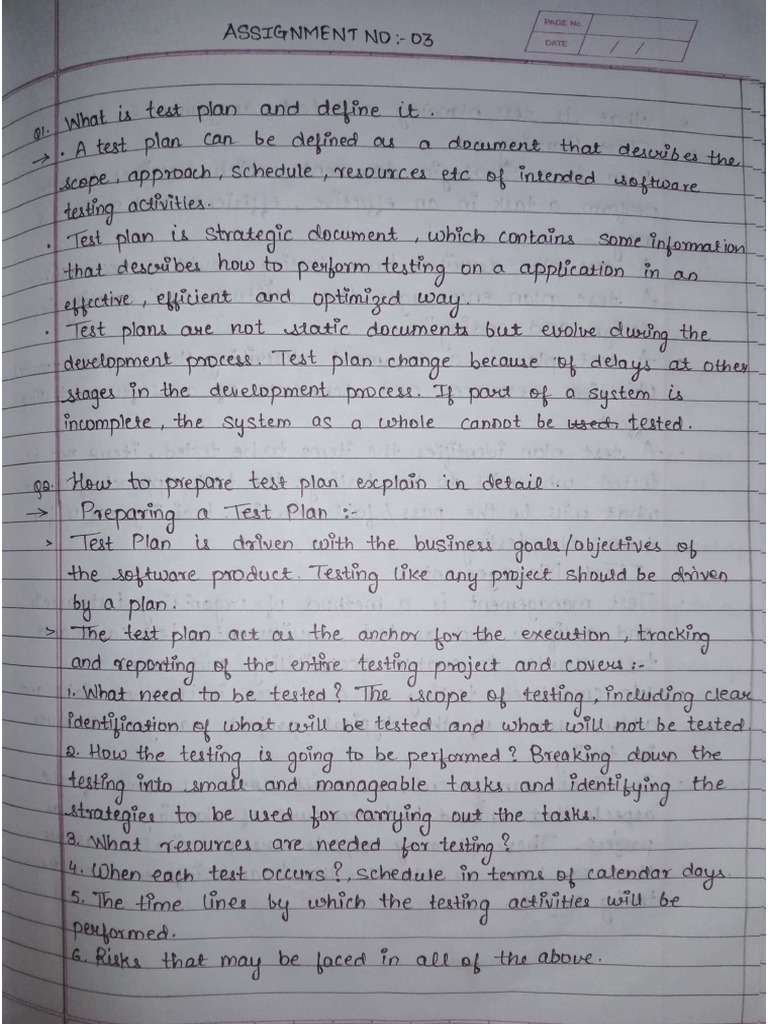 ASSIGNMENT NO :- 03
PAGE No.
DATE / /
Q1. What is test plan and define it.
→ . A test plan can be defined as a document that describes the
scope, approach, schedule, resources etc of intended software
testing activities.
. Test plan is strategic document, which contains some information
that describes how to perform testing on a application in an
effective, efficient and optimized way.
. Test plans are not static documents but evolve during the
development process. Test plan change because of delays at other
stages in the development process. If part of a system is
incomplete, the system as a whole cannot be used tested.
Q2. How to prepare test plan explain in detail.
→ Preparing a Test Plan :-
> Test Plan is driven with the business goals/objectives of
the software product. Testing like any project should be driven
by a plan.
> The test plan act as the anchor for the execution, tracking
and reporting of the entire testing project and covers :-
1. What need to be tested? The scope of testing, including clear
identification of what will be tested and what will not be tested.
2. How the testing is going to be performed? Breaking down the
testing into small and manageable tasks and identifying the
strategies to be used for carrying out the tasks.
3. What resources are needed for testing?
4. When each test occurs?, schedule in terms of calendar days.
5. The time lines by which the testing activities will be
performed.
6. Risks that may be faced in all of the above.